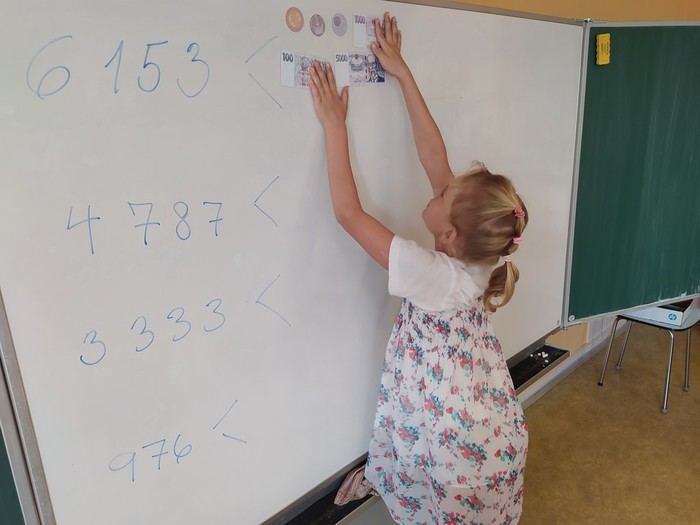 1000
6 153 < 100 5000
4 787 <
3 333 <
976 <